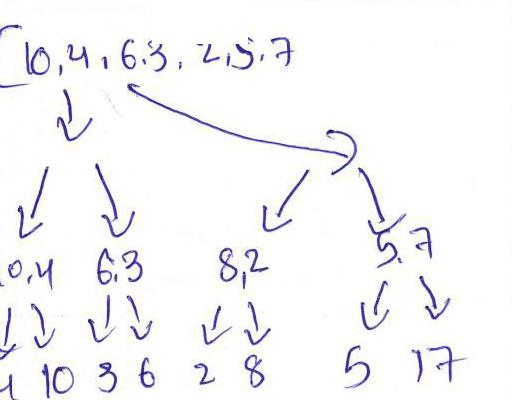 [10,4, 6.3, 2,5.7
0,4 6.3 8,2 5.7
4 10 3 6 2 8 5 17